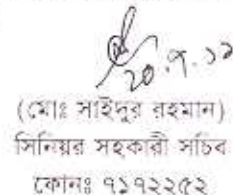 ২০.৭.১১
(মোঃ সাইদুর রহমান)
সিনিয়র সহকারী সচিব
ফোনঃ ৭১৭২২৫২